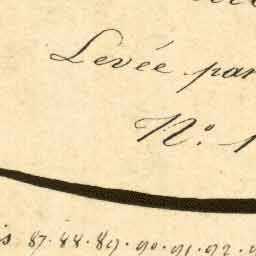 Levée par
N.o 1
is 87. 88. 89. 90. 91. 92.